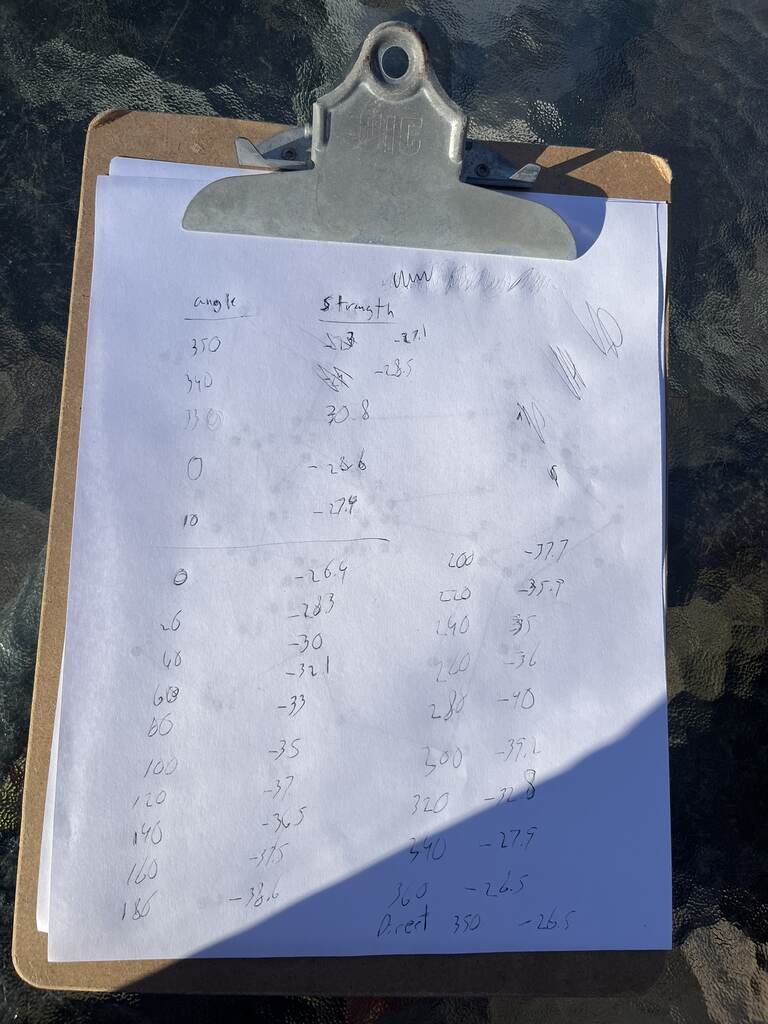 angle strength
350 -27.1
340 -28.5
330 30.8
0 -28.6
10 -27.4
0 -26.4
20 -28.3
40 -30
60 -32.1
80 -33
100 -35
120 -37
140 -36.5
160 -37.5
180 -38.6
200 -37.7
220 -35.9
240 35
260 -36
280 -40
300 -39.2
320 -32.8
340 -27.9
360 -26.5
Direct 350 -26.5